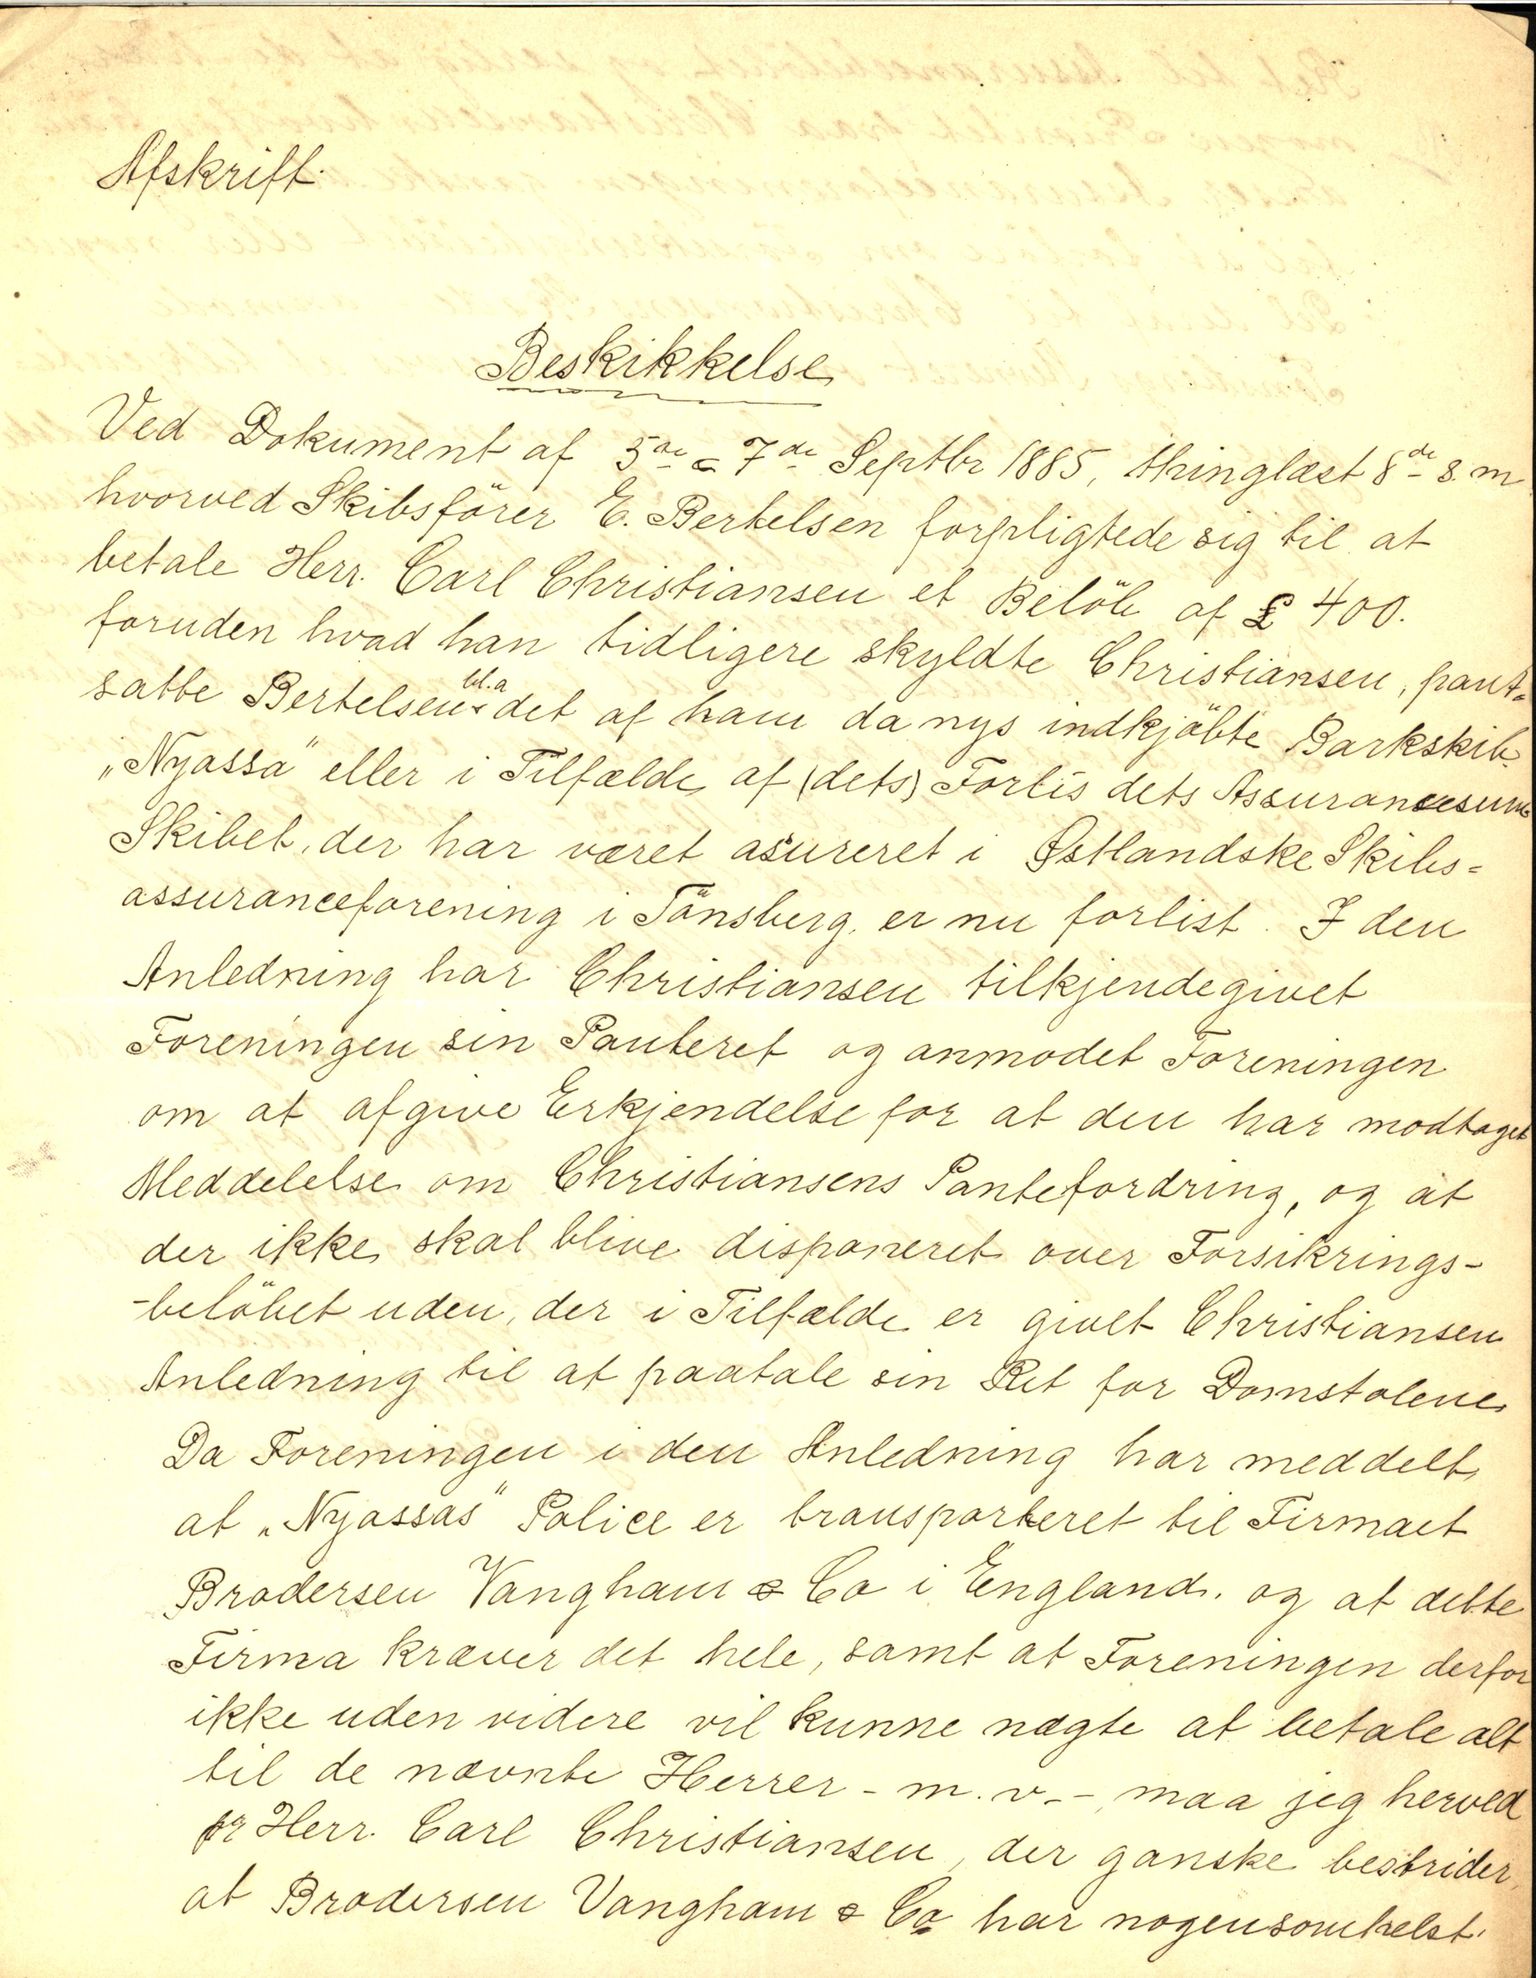 Afskrift.
Beskikkelse
Ved Dokument af 5de & 7de Septbr 1885, thinglæst 8de s. m
hvorved Skibsförer E. Bertelsen forpligtede sig til at
betale Herr. Carl Christiansen et Belöb af £ 400.
foruden hvad han tidligere skyldte Christiansen, pant-
satte Bertelsen bl.a det af ham da nys indkjöbte Barkskib
„Nyassa" eller i Tilfælde af (dets) Forlis dets Assurancesum
Skibet, der har været asureret i Østlandske Skibs=
assuranceforening i Tönsberg, er nu forlist. I den
Anledning har Christiansen tilkjendegivet
Foreningen sin Panteret og anmodet Foreningen
om at afgive Erkjendelse for at den har modtaget
Meddelelse om Christiansens Pantefordring, og at
der ikke skal blive disponeret over Forsikrings-
-belöbet uden, der i Tilfælde er givet Christiansen
Anledning til at paatale sin Ret for Domstolene
Da Foreningen i den Anledning har meddelt
at „Nyassas" Police er transporteret til Firmaet
Brodersen Vangham & Co i England. og at dette
Firma kræver det hele, samt at Foreningen derfor
ikke uden videre vil kunne nægte at betale alt
til de nævnte Herrer - m. v. - maa jeg herved
pr Herr. Carl Christiansen, der ganske bestrider,
at Brodersen Vangham & Co har nogensomhelst